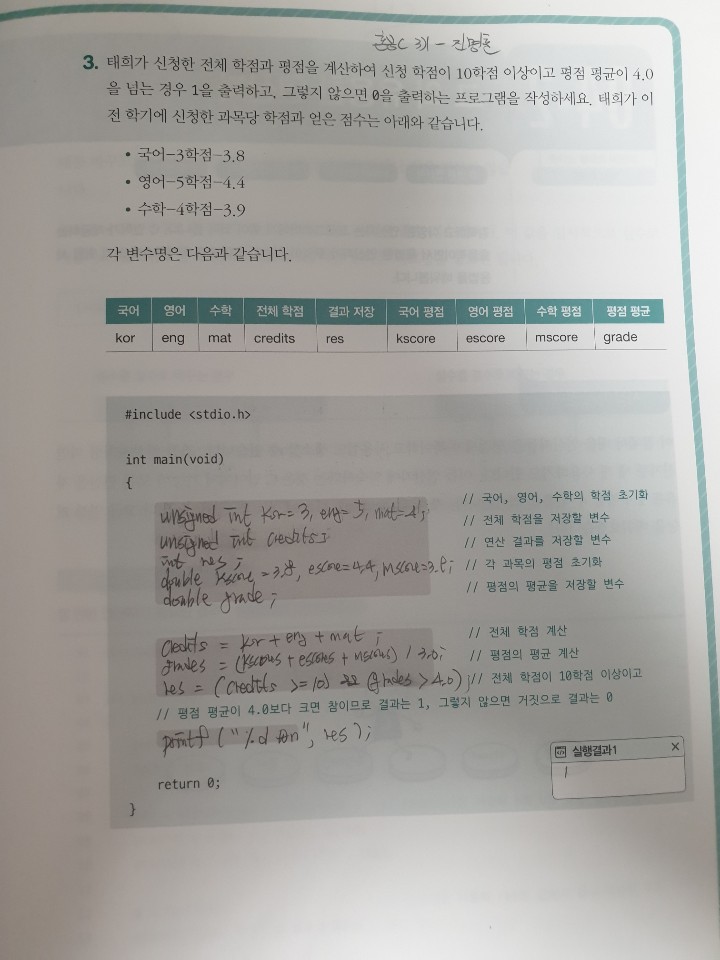 혼공C 3기 - 진명훈
3. 태희가 신청한 전체 학점과 평점을 계산하여 신청 학점이 10학점 이상이고 평점 평균이 4.0
을 넘는 경우 1을 출력하고, 그렇지 않으면 0을 출력하는 프로그램을 작성하세요. 태희가 이
전 학기에 신청한 과목당 학점과 얻은 점수는 아래와 같습니다.
• 국어-3학점-3.8
• 영어-5학점-4.4
• 수학-4학점-3.9
각 변수명은 다음과 같습니다.
국어 영어 수학 전체 학점 결과 저장 국어 평점 영어 평점 수학 평점 평점 평균
kor eng mat credits res kscore escore mscore grade
#include <stdio.h>
int main(void)
{
unsigned int kor=3, eng=5, mat=4; // 국어, 영어, 수학의 학점 초기화
unsigned int credits; // 전체 학점을 저장할 변수
int res; // 연산 결과를 저장할 변수
double kscore=3.8, escore=4.4, mscore=3.9; // 각 과목의 평점 초기화
double grade; // 평점의 평균을 저장할 변수
credits = kor + eng + mat ; // 전체 학점 계산
grades = (kscores + escores + mscores) / 3.0; // 평점의 평균 계산
res = (credits >= 10) && (grades > 4.0); // 전체 학점이 10학점 이상이고
// 평점 평균이 4.0보다 크면 참이므로 결과는 1, 그렇지 않으면 거짓으로 결과는 0
printf ("%d \n", res);
실행결과1 ×
1
return 0;
}